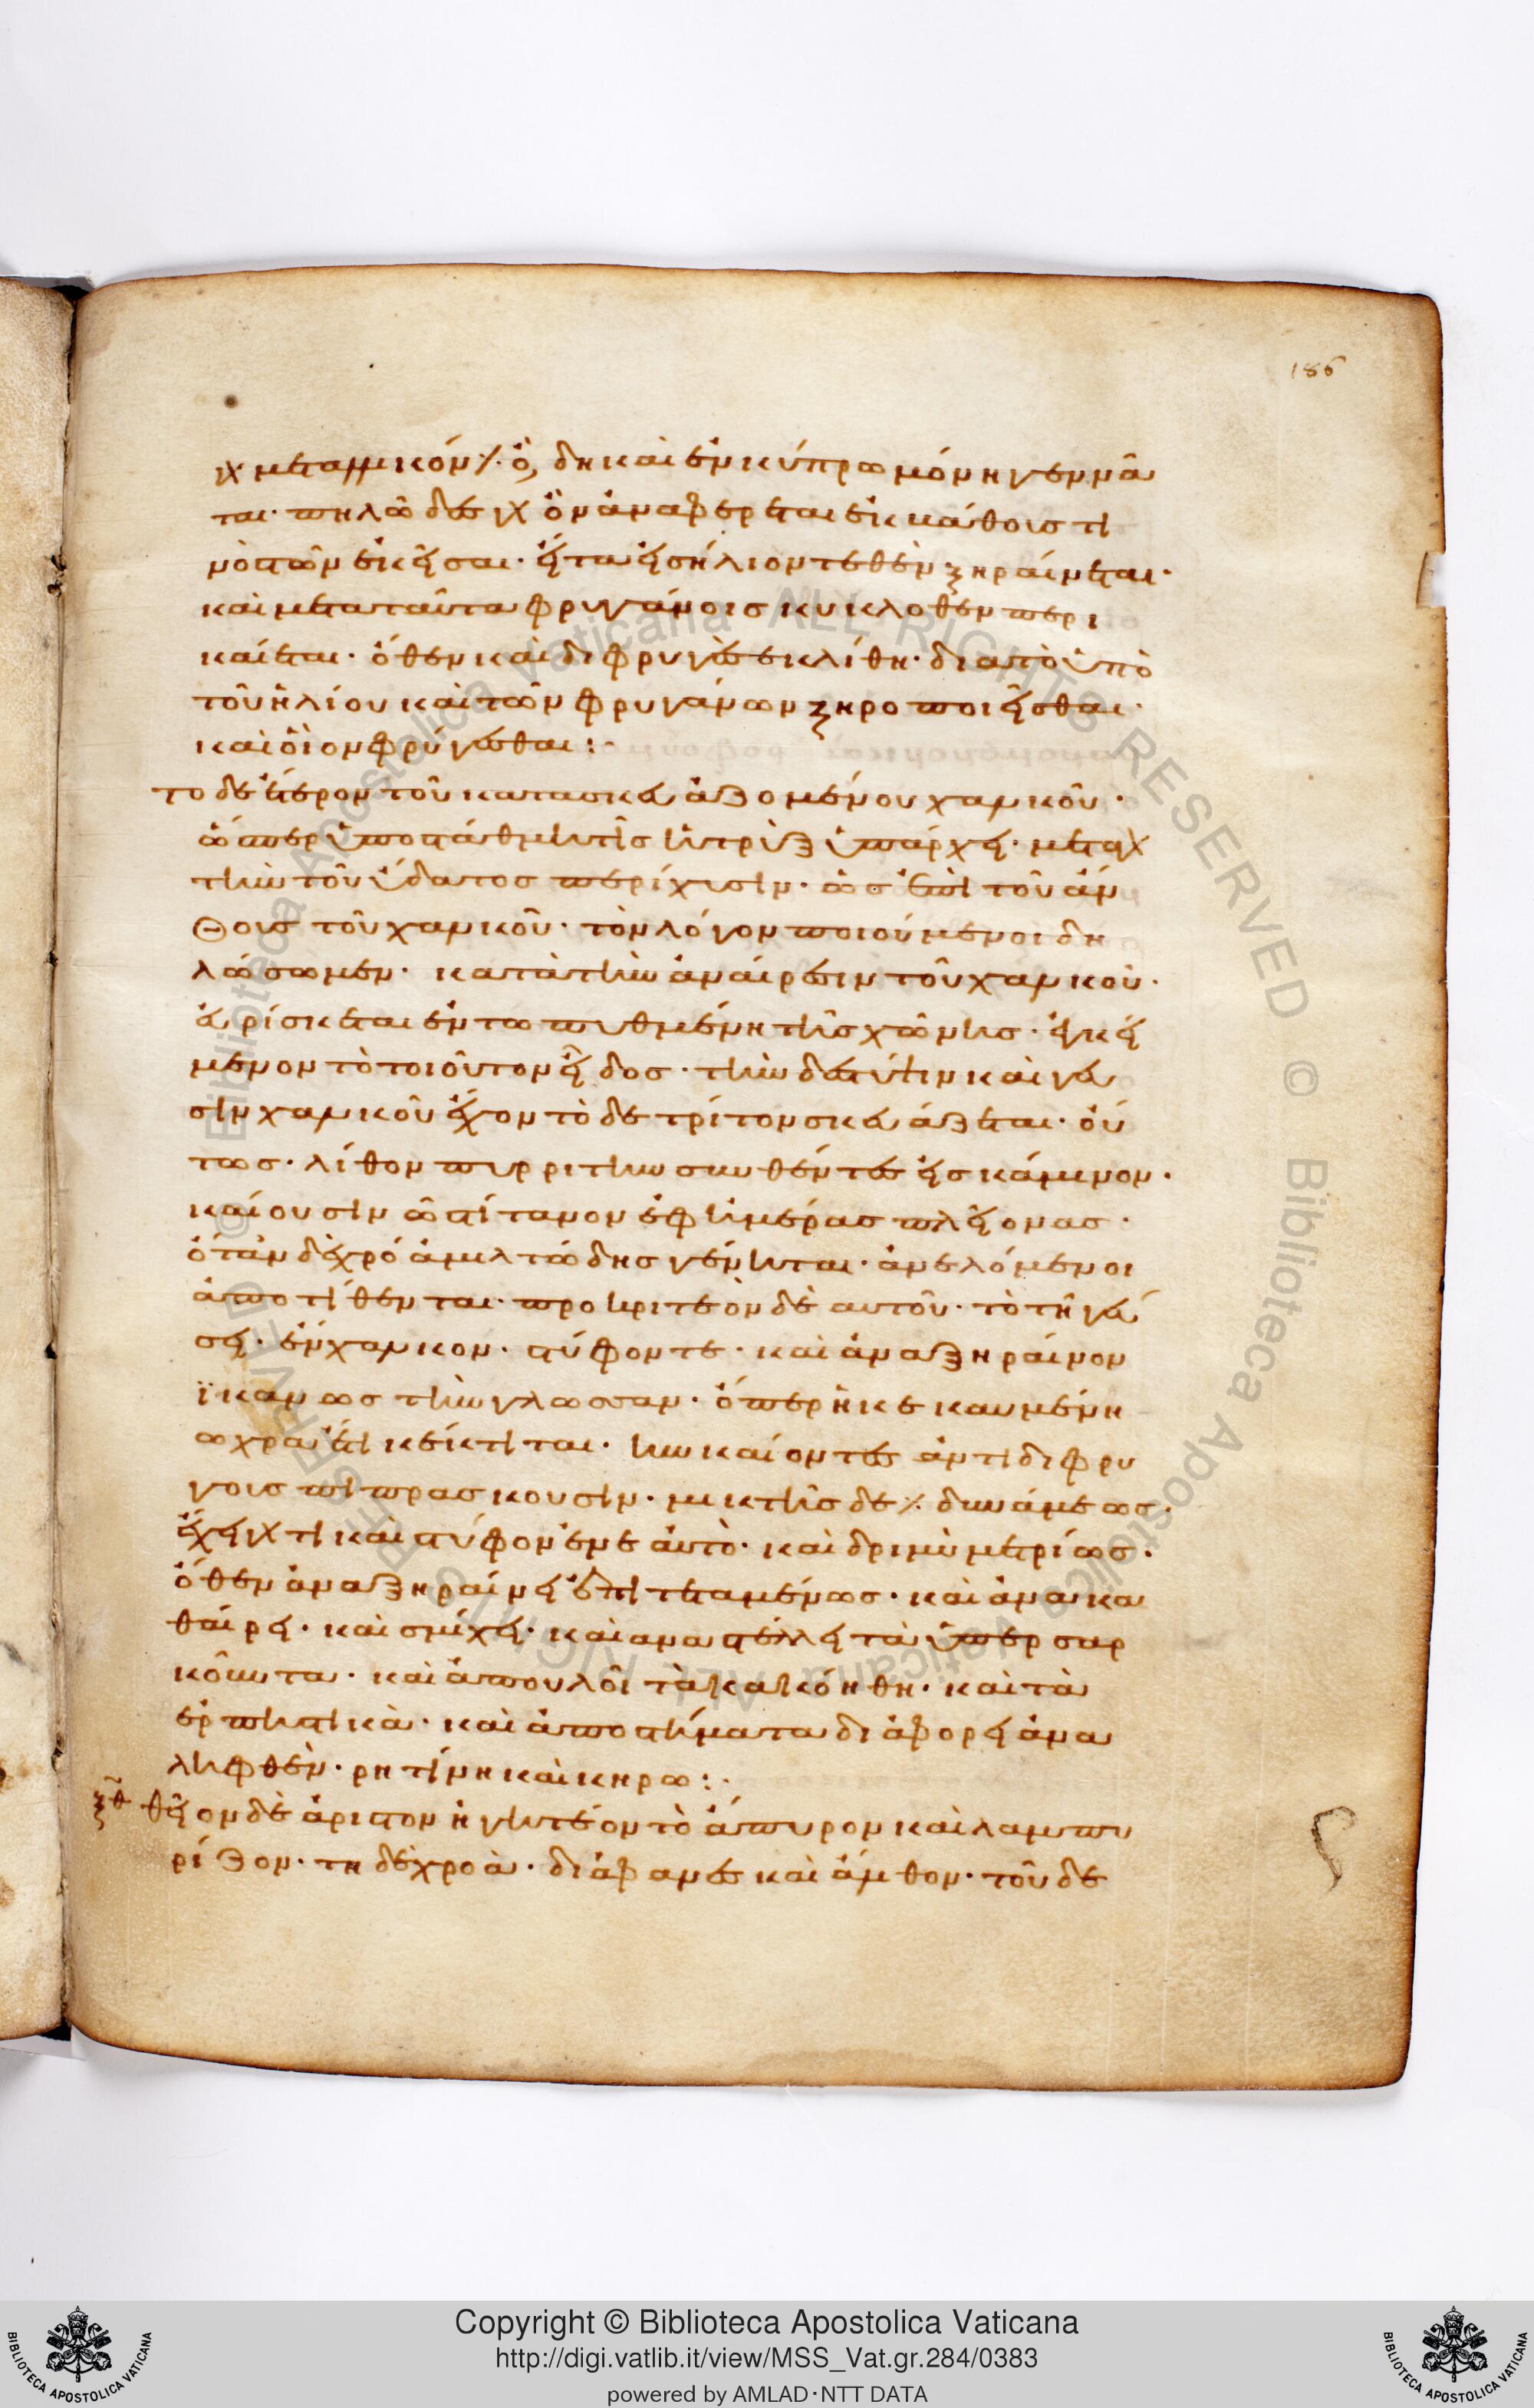 186
γὰρ μεταλλικόν ἐστι· ὃ, δὴ καὶ ἐν κύπρω μόνη γεννᾶ
ται· πηλῶδες γὰρ ὂν ἀναφέρεται ἐκ βάθους τι
νὸς τῶν ἐκεῖσαι· εἶτα εἰς ἥλιον τεθὲν ξηραίνεται·
καὶ μετα ταῦτα φρυγάνοις κυκλοθεν περι
καίεται· ὅθεν καὶ διφρυγὲς ἐκλίθη· δια τὸ ὑπὸ
τοῦ ἡλίου καὶ τῶν φρυγάνων ξηροποιεῖσθαι·
καὶ οἷον φρύγεσθαι:·
το δὲ ἕτερον τοῦ κατασκευαζομένου χαλκοῦ·
ὥσπερ ὑποστάθμη τῆς
τὴν τοῦ ὕδατος περίχυσιν· ὡς ἐπὶ τοῦ ἄν
θους τοῦ χαλκοῦ· τὸν λόγον ποιούμενοι δη
λώσωμεν· κατὰ τὴν ἀναίρεσιν τοῦ χαλκοῦ·
εὑρίσκεται ἐν τω πυθμένη τῆς χώνης· ἐγκεί
μενον τὸ τοιοῦτον εἶδος· τὴν δὲ στύψιν καὶ γεῦ
σιν χαλκοῦ ἔχον τὸ δὲ τρίτον σκευάζεται· οὕ
τως· λίθον πυρριτην συνθέντες εἰς κάμινον·
καίουσιν ὡς τίτανον ἐφ ἡμέρας πλείονας·
ὁτὰν δὲ χρόα μιλτώδης γένηται· ἀνελόμενοι
ἀποτίθενται· προκριτεὸν δὲ αυτοῦ· τὸ τῆ γεύ
σει· ἔνχαλκον· στύφον τε· καὶ ἀναξηραίνον
ϊκανως τὴν γλωσσαν· ὅπερ ἡ κεκαυμένη
ωχρα οὐ κέκτιται· ἣν καίοντες ἀντι διφρυ
γους πιπρασκουσιν· μικτῆς δε ἐστι δυνάμεως·
ἔχει γάρ τι και στύφον ἐν εαυτὸ· καὶ δριμὺ μετρίως·
ὅθεν ἀναξηραίνει ἐπιτεταμένως· καὶ ἀνακα
θαίρει· καὶ σμίχει· καὶ αναστέλλει τὰ ὑπερσαρ
κοῦντα· καὶ ἀπουλοῖ τὰ κακόηθη· καὶ τὰ
ἑρπηστικὰ· καὶ ἀποστήματα διἀφορεῖ ἀνα
ληφθὲν· ρητίνη καὶ κηρω:·
ξθ θεῖον δὲ ἄριστον ἡγητέον τὸ ἄπυρον καὶ λαμπυ
ρίζον· τη δὲ χροὰ· διἀφανὲς καὶ ἄλιθον· τοῦ δὲ
Copyright © Biblioteca Apostolica Vaticana
http://digi.vatlib.it/view/MSS_Vat.gr.284/0383
powered by AMLAD·NTT DATA